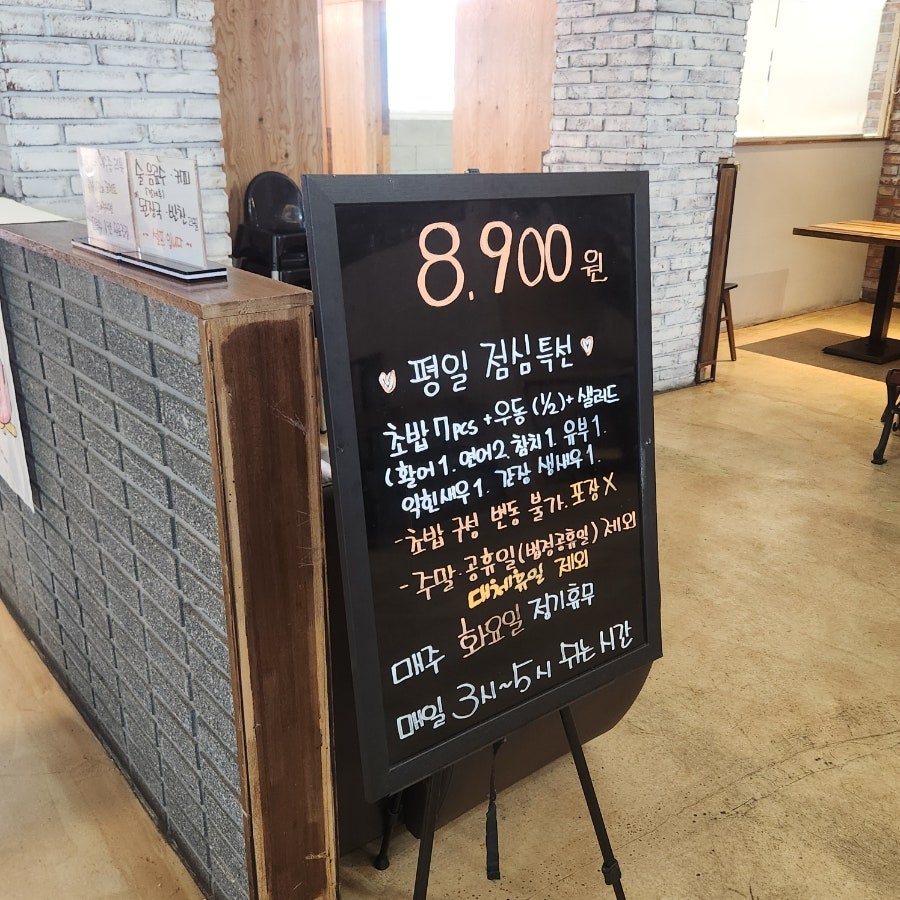 8.900원
평일 점심특선
초밥 7pcs + 우동(1/2) + 샐러드
(활어1. 연어2. 참치1. 유부1.
익힌새우1. 간장 생새우1.
- 초밥 구성 변동 불가. 포장X
- 주말·공휴일(법정공휴일) 제외
대체휴일 제외
매주 화요일 정기휴무
매일 3시~5시 쉬는시간